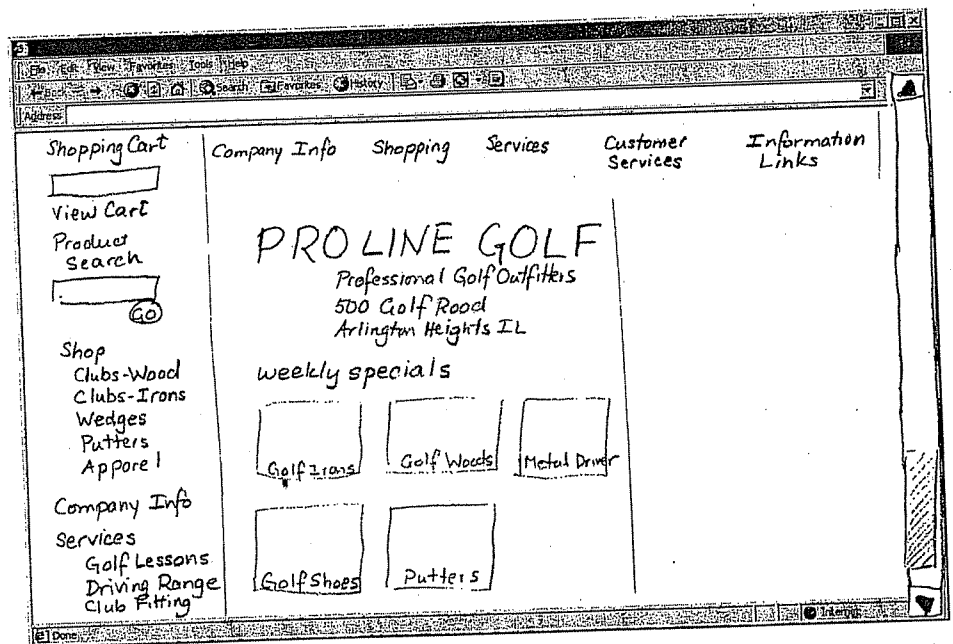 File Edit View Favorites Tools Help
Back Search Favorites History
Address
Shopping Cart
View Cart
Product
Search
GO
Shop
Clubs-Wood
Clubs-Irons
Wedges
Putters
Apparel
Company Info
Services
Golf Lessons
Driving Range
Club Fitting
Company Info Shopping Services Customer Services Information Links
PRO LINE GOLF
Professional Golf Outfitters
500 Golf Road
Arlington Heights IL
weekly specials
Golf Irons Golf Woods Metal Driver
Golf Shoes Putters
Done Internet